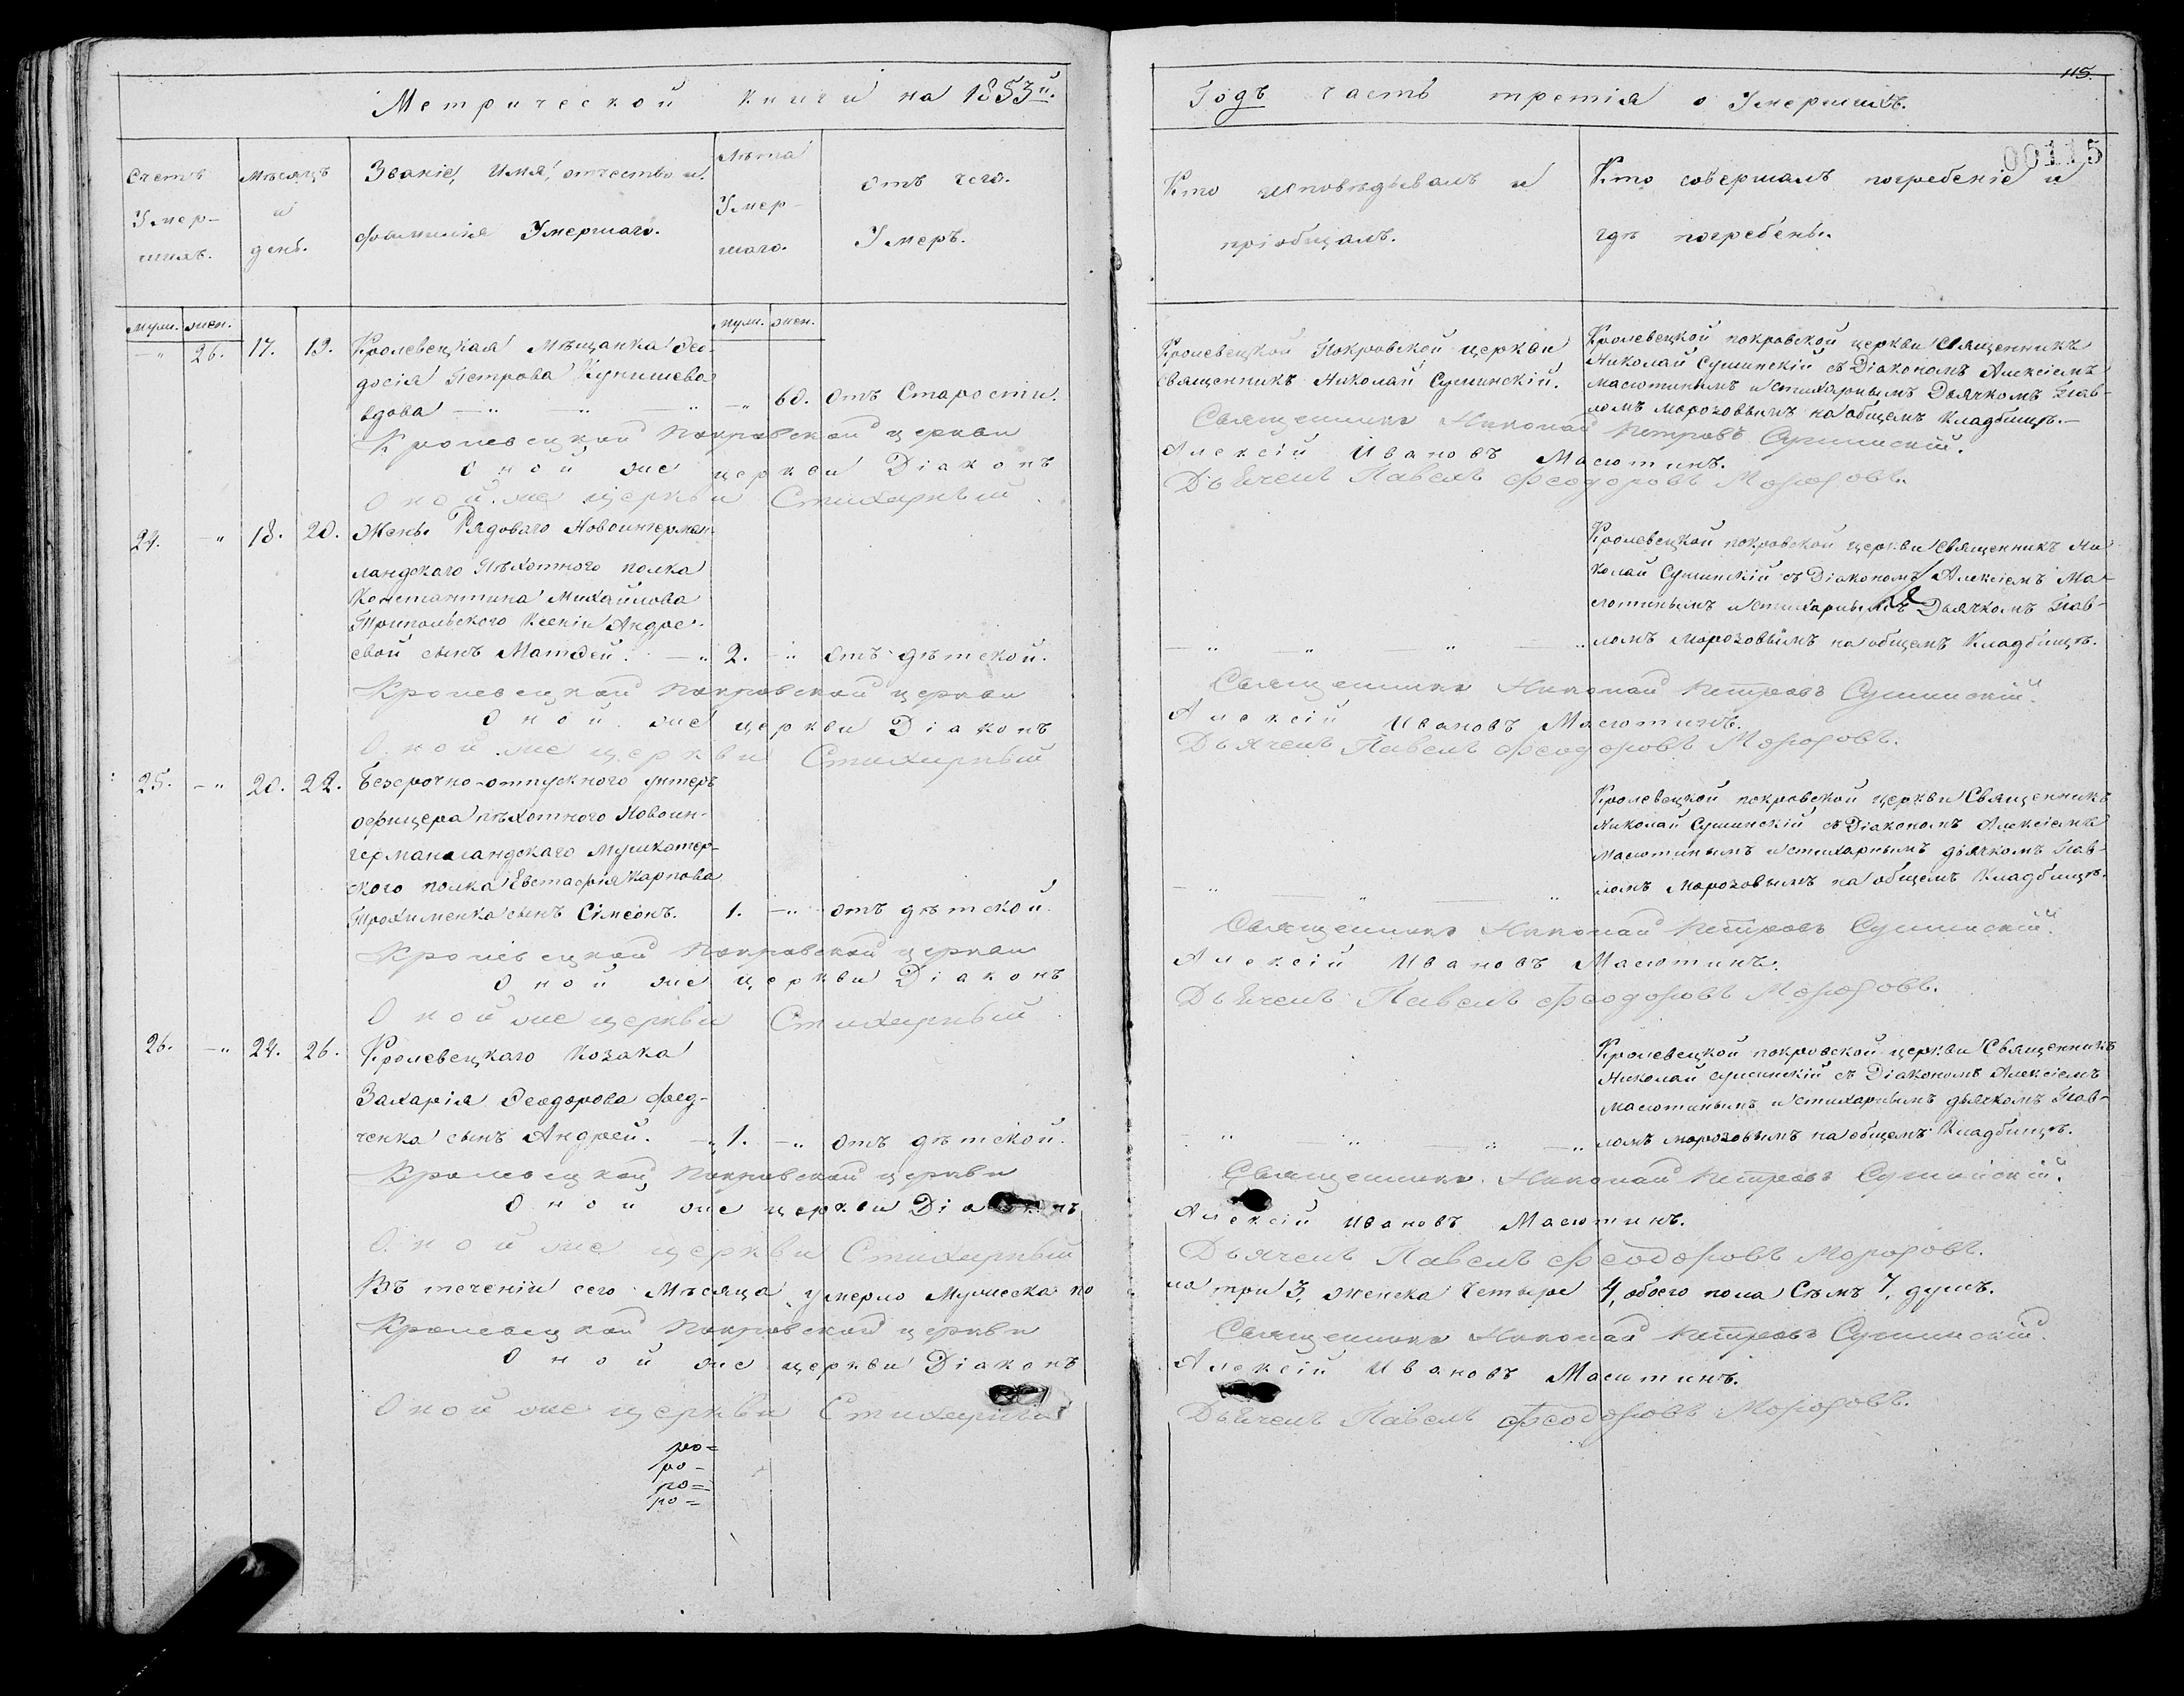 Метрической книги на 1853й.
Годъ часть третія о Умершихъ.
115.
00115
Счетъ Умер-
шихъ.
Мѣсяцъ и день.
Званіе, Имя, отчество и
фамилія Умершаго.
Лѣта Умер-
шаго.
Отъ чего
Умеръ.
Кто исповѣдывалъ и
пріобщалъ.
Кто совершалъ погребеніе и
гдѣ погребены.
муж. жен.
муж. жен.
—„ 26. 17. 19. Кролевецкая Мѣщанка Ѳео-
досія Петрова
вдова —„ „ „ —„ 60. Отъ Старости.
Кролевецкой Покровской церкви
Священникъ Николай Сушинскій.
Кролевецкой покровской церкви Священникъ
Николай Сушинскій съ Діакономъ Алексіемъ
Масютинымъ и стихарнымъ Дьячкомъ Пав-
ломъ Морозовымъ на общемъ Кладбищѣ.—
Кролевецкой Покровской церкви Священникъ Николай Петровъ Сушинскій.
Оной же церкви Діаконъ Алексій Ивановъ Масютинъ.
Оной же церкви Стихарный Дьячекъ Павелъ Феодоровъ Морозовъ.
24. —„ 18. 20. Жены Рядоваго Новоингерман-
ландскаго Пѣхотного полка
Константина Михайлова
Трипольского Ксеніи Андре-
евой сынъ Матфей. —„ 2. —„ отъ дѣтской.
Кролевецкой покровской церкви Священникъ Ни-
колай Сушинскій съ Діакономъ Алексіемъ Ма-
сютинымъ и стихарнымъ Дьячкомъ Пав-
ломъ Морозовымъ на общемъ Кладбищѣ.
Кролевецкой Покровской церкви Священникъ Николай Петровъ Сушинскій.
Оной же церкви Діаконъ Алексій Ивановъ Масютинъ.
Оной же церкви Стихарный Дьячекъ Павелъ Феодоровъ Морозовъ.
25. —„ 20. 22. Безсрочно-отпускного унтеръ
офицера пѣхотного Новоин-
германландскаго Мушкатер-
ского полка Евстафія Карпова
Трохименка сынъ Сімеонъ. 1. —„ отъ дѣтской.
Кролевецкой покровской церкви Священникъ
Николай Сушинскій съ Діакономъ Алексіемъ
Масютинымъ и стихарнымъ дьячкомъ Пав-
ломъ Морозовымъ на общемъ Кладбищѣ.
Кролевецкой Покровской церкви Священникъ Николай Петровъ Сушинскій.
Оной же церкви Діаконъ Алексій Ивановъ Масютинъ.
Оной же церкви Стихарный Дьячекъ Павелъ Феодоровъ Морозовъ.
26. —„ 24. 26. Кролевецкаго Козака
Захарія Ѳеодорова Фед-
ченка сынъ Андрей. —„ 1. —„ отъ дѣтской.
Кролевецкой покровской церкви Священникъ
Николай Сушинскій съ Діакономъ Алексіемъ
Масютинымъ и стихарнымъ дьячкомъ Пав-
ломъ Морозовымъ на общемъ Кладбищѣ.
Кролевецкой Покровской церкви Священникъ Николай Петровъ Сушинскій.
Оной же церкви Діаконъ Алексій Ивановъ Масютинъ.
Оной же церкви Стихарный Дьячекъ Павелъ Феодоровъ Морозовъ.
Въ теченіи сего Мѣсяца умерло Мужеска по
ла три 3, женска Четыре 4, обоего пола Сѣмъ 7, душъ.
Кролевецкой Покровской церкви Священникъ Николай Петровъ Сушинскій.
Оной же церкви Діаконъ Алексій Ивановъ Масютинъ.
Оной же церкви Стихарный Дьячекъ Павелъ Феодоровъ Морозовъ.
ро=
ро-
ро=
ро=